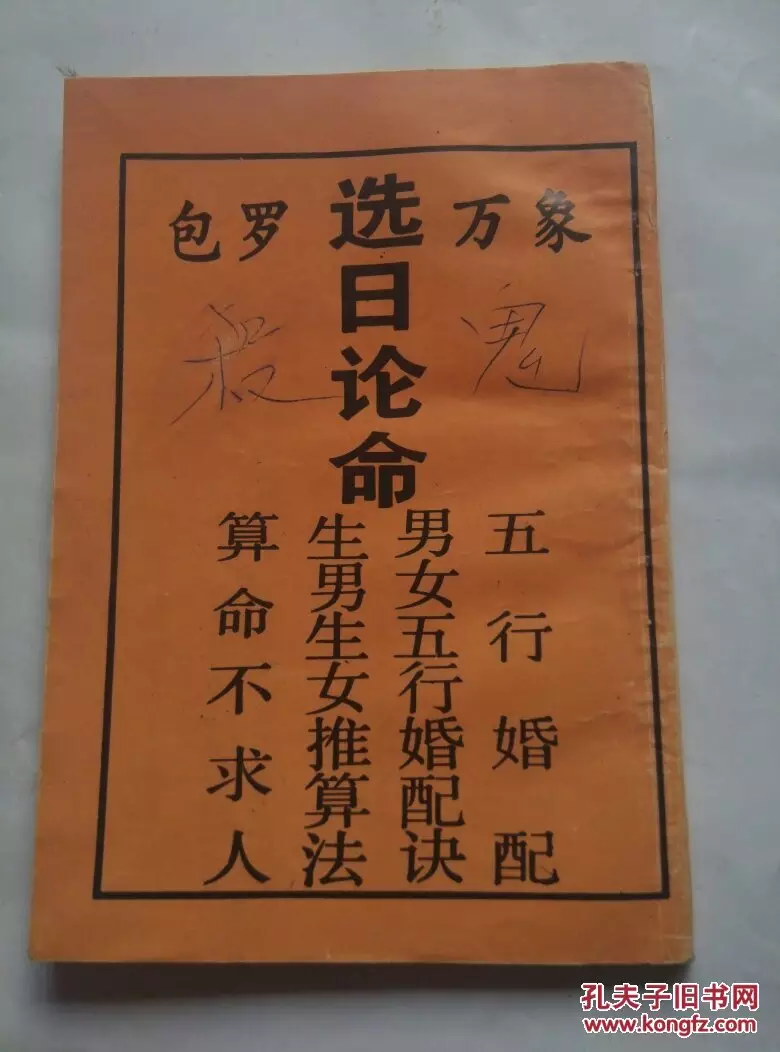 包罗 万象
选日论命
鬼
五行婚配
男女五行婚配诀
生男生女推算法
算命不求人
孔夫子旧书网
www.kongfz.com